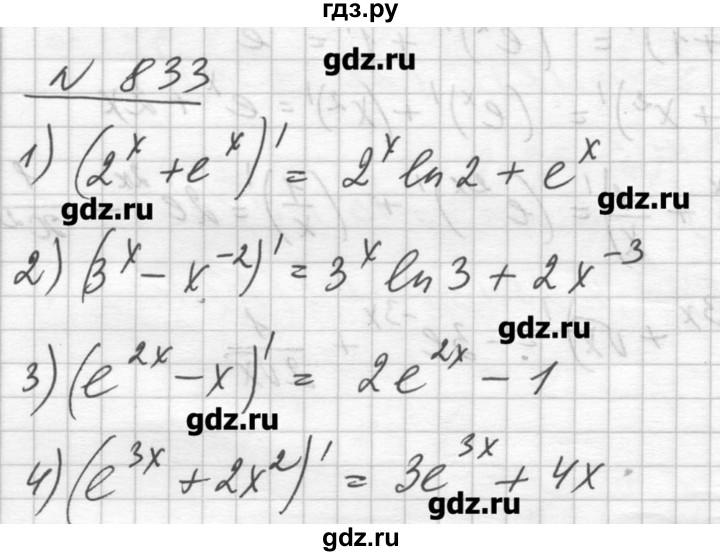 гдз.ру
gdz.ru
N 833
1) (2^x + e^x)' = 2^x ln 2 + e^x
gdz.ru
gdz.ru
2) (3^x - x^{-2})' = 3^x ln 3 + 2x^{-3}
gdz.ru
3) (e^{2x} - x)' = 2e^{2x} - 1
gdz.ru
4) (e^{3x} + 2x^2)' = 3e^{3x} + 4x
gdz.ru
gdz.ru